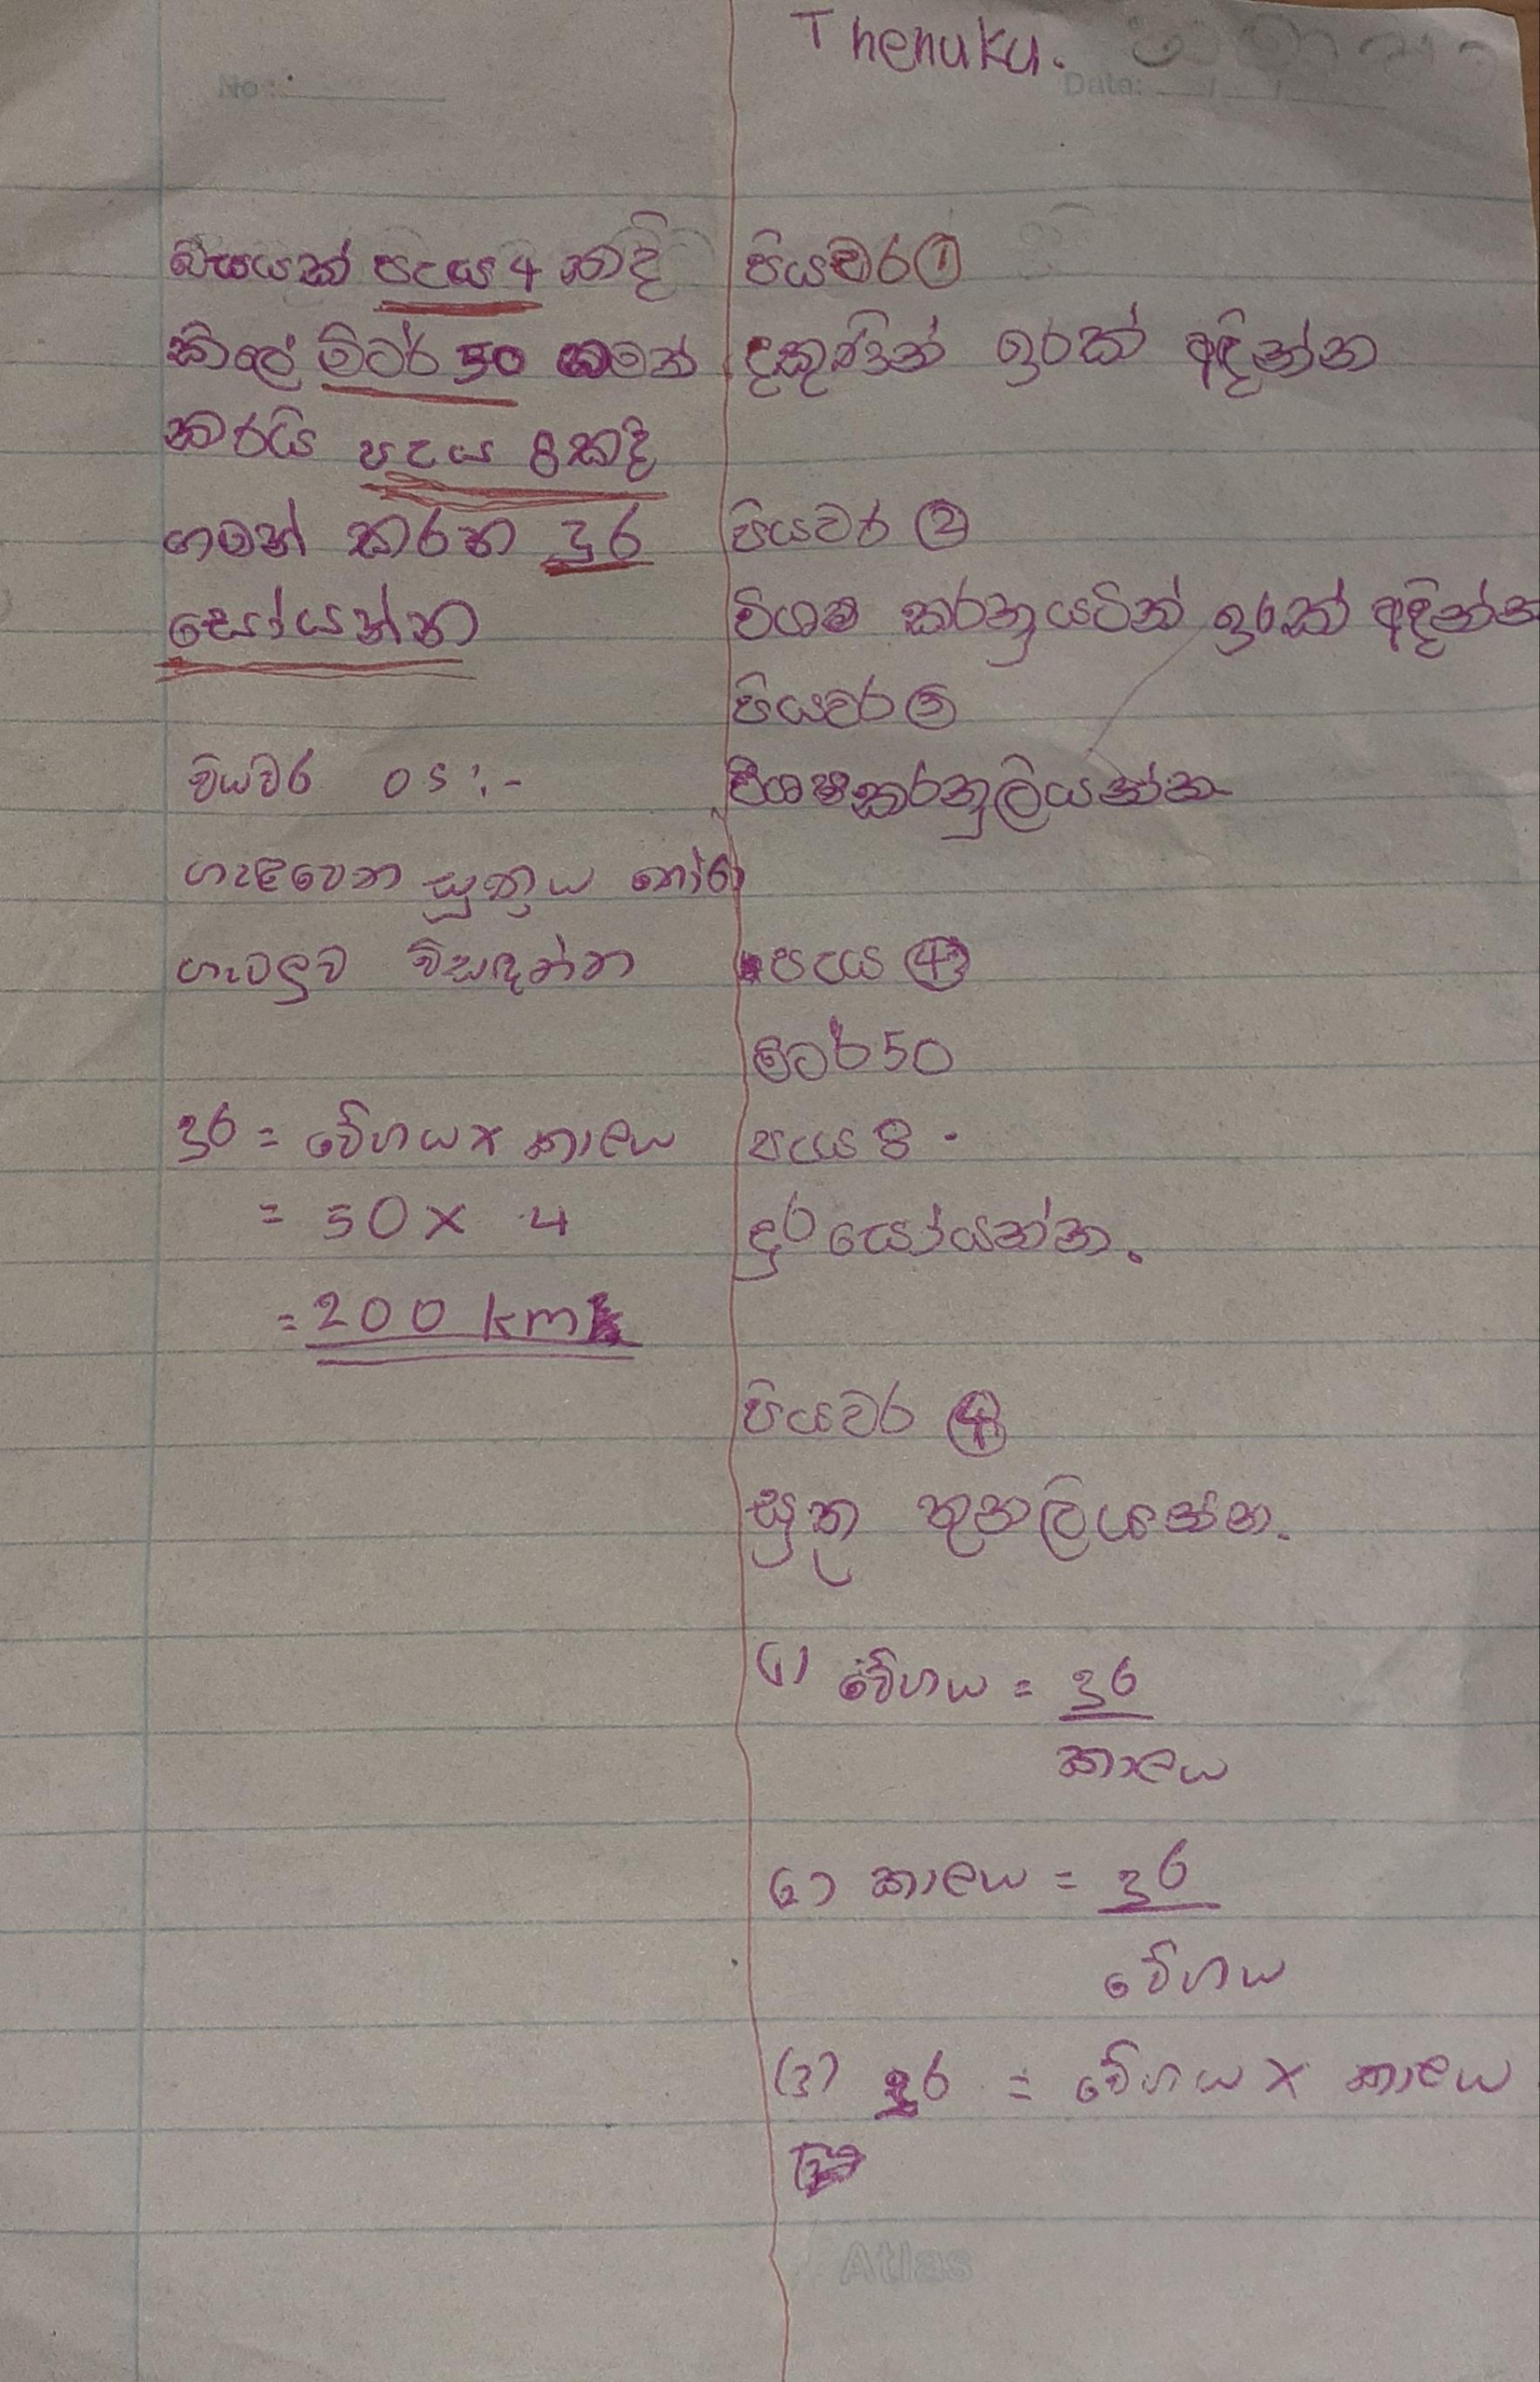 Thenuku.
No :
Date:
බසයක් පැය 4 කදි
කිලේ මිටර් 50 ගමන්
කරයි පැය 8කදි
ගමන් කරන දුර
සොයන්න
පියවර 05 :-
ගැළපෙන සුත්‍රය තෝරා
ගැටලුව විසඳන්න
දුර = වේගය x කාලය
= 50 x 4
= 200 km
පියවර ①
දකුණින් ඉරක් අඳින්න
පියවර ②
විශෂ කරනුයටින් ඉරක් අඳින්න
පියවර ③
විශෂකරනුලියන්න
පැය ④
මිටර් 50
පැය 8
දුර සොයන්න.
පියවර ④
සුත්‍ර තුනලියන්න.
(1) වේගය = දුර
කාලය
(2) කාලය = දුර
වේගය
(3) දුර = වේගය x කාලය
Atlas